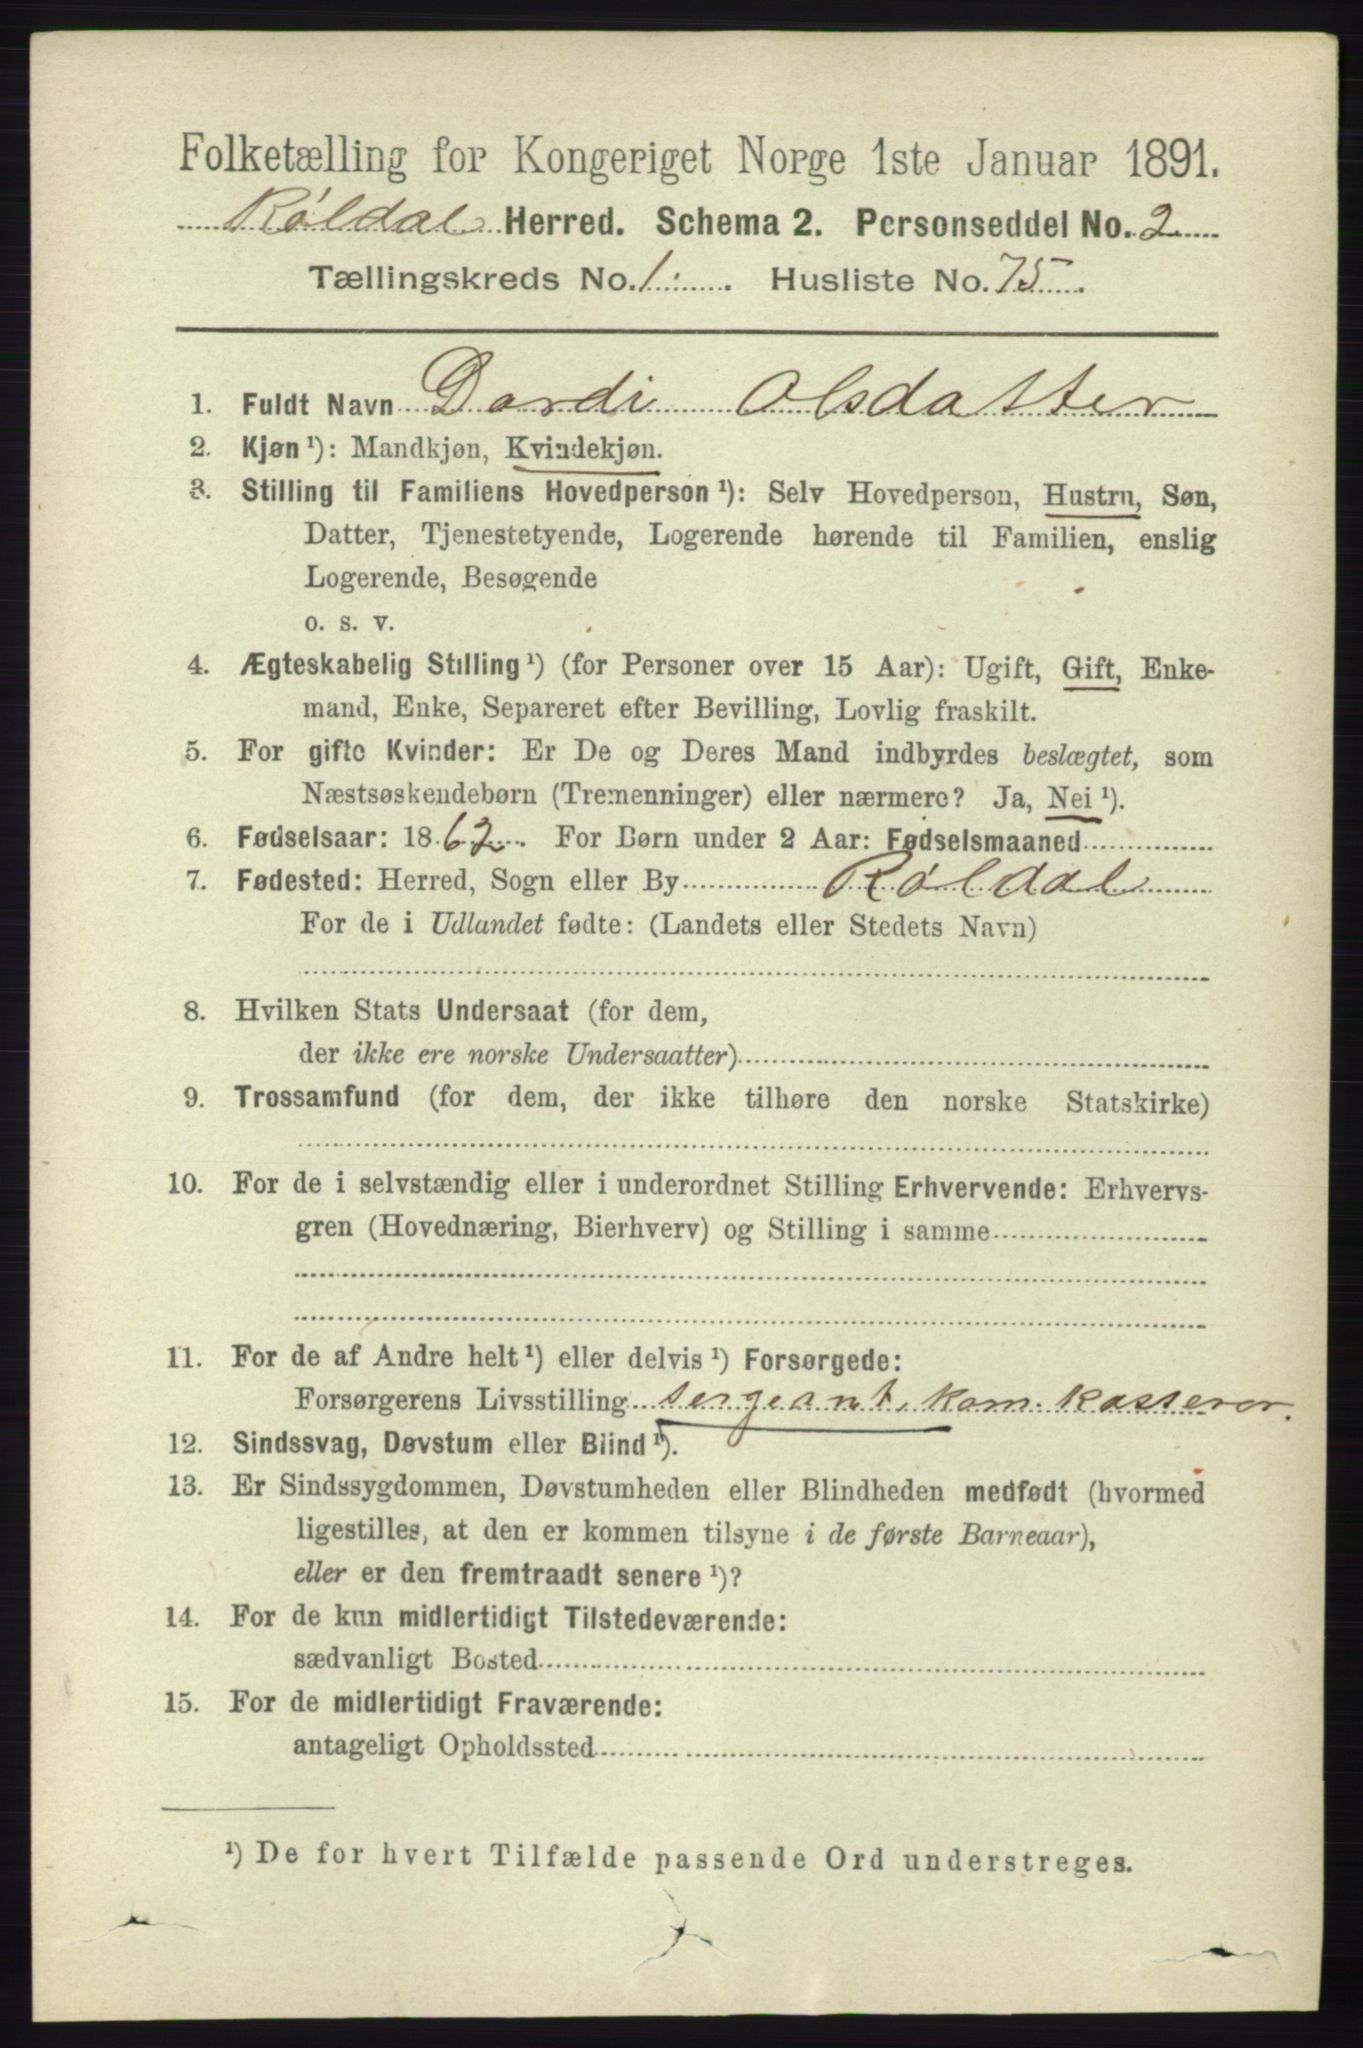 Folketælling for Kongeriget Norge 1ste Januar 1891.
Røldal Herred. Schema 2. Personseddel No. 2
Tællingskreds No. 1. Husliste No. 75.
1. Fuldt Navn Dordi Olsdatter
2. Kjøn ¹): Mandkjøn, Kvindekjøn.
3. Stilling til Familiens Hovedperson ¹): Selv Hovedperson, Hustru, Søn,
Datter, Tjenestetyende, Logerende hørende til Familien, enslig
Logerende, Besøgende
o. s. v.
4. Ægteskabelig Stilling ¹) (for Personer over 15 Aar): Ugift, Gift, Enke-
mand, Enke, Separeret efter Bevilling, Lovlig fraskilt.
5. For gifte Kvinder: Er De og Deres Mand indbyrdes beslægtet, som
Næstsøskendebørn (Tremenninger) eller nærmere? Ja, Nei ¹).
6. Fødselsaar: 1862. For Børn under 2 Aar: Fødselsmaaned
7. Fødested: Herred, Sogn eller By Røldal
For de i Udlandet fødte: (Landets eller Stedets Navn)
8. Hvilken Stats Undersaat (for dem,
der ikke ere norske Undersaatter)
9. Trossamfund (for dem, der ikke tilhøre den norske Statskirke)
10. For de i selvstændig eller i underordnet Stilling Erhvervende: Erhvervs-
gren (Hovednæring, Bierhverv) og Stilling i samme
11. For de af Andre helt ¹) eller delvis ¹) Forsørgede:
Forsørgerens Livsstilling sergeant, kom. kasserer.
12. Sindssvag, Døvstum eller Blind ¹).
13. Er Sindssygdommen, Døvstumheden eller Blindheden medfødt (hvormed
ligestilles, at den er kommen tilsyne i de første Barneaar),
eller er den fremtraadt senere ¹)?
14. For de kun midlertidigt Tilstedeværende:
sædvanligt Bosted
15. For de midlertidigt Fraværende:
antageligt Opholdssted
¹) De for hvert Tilfælde passende Ord understreges.